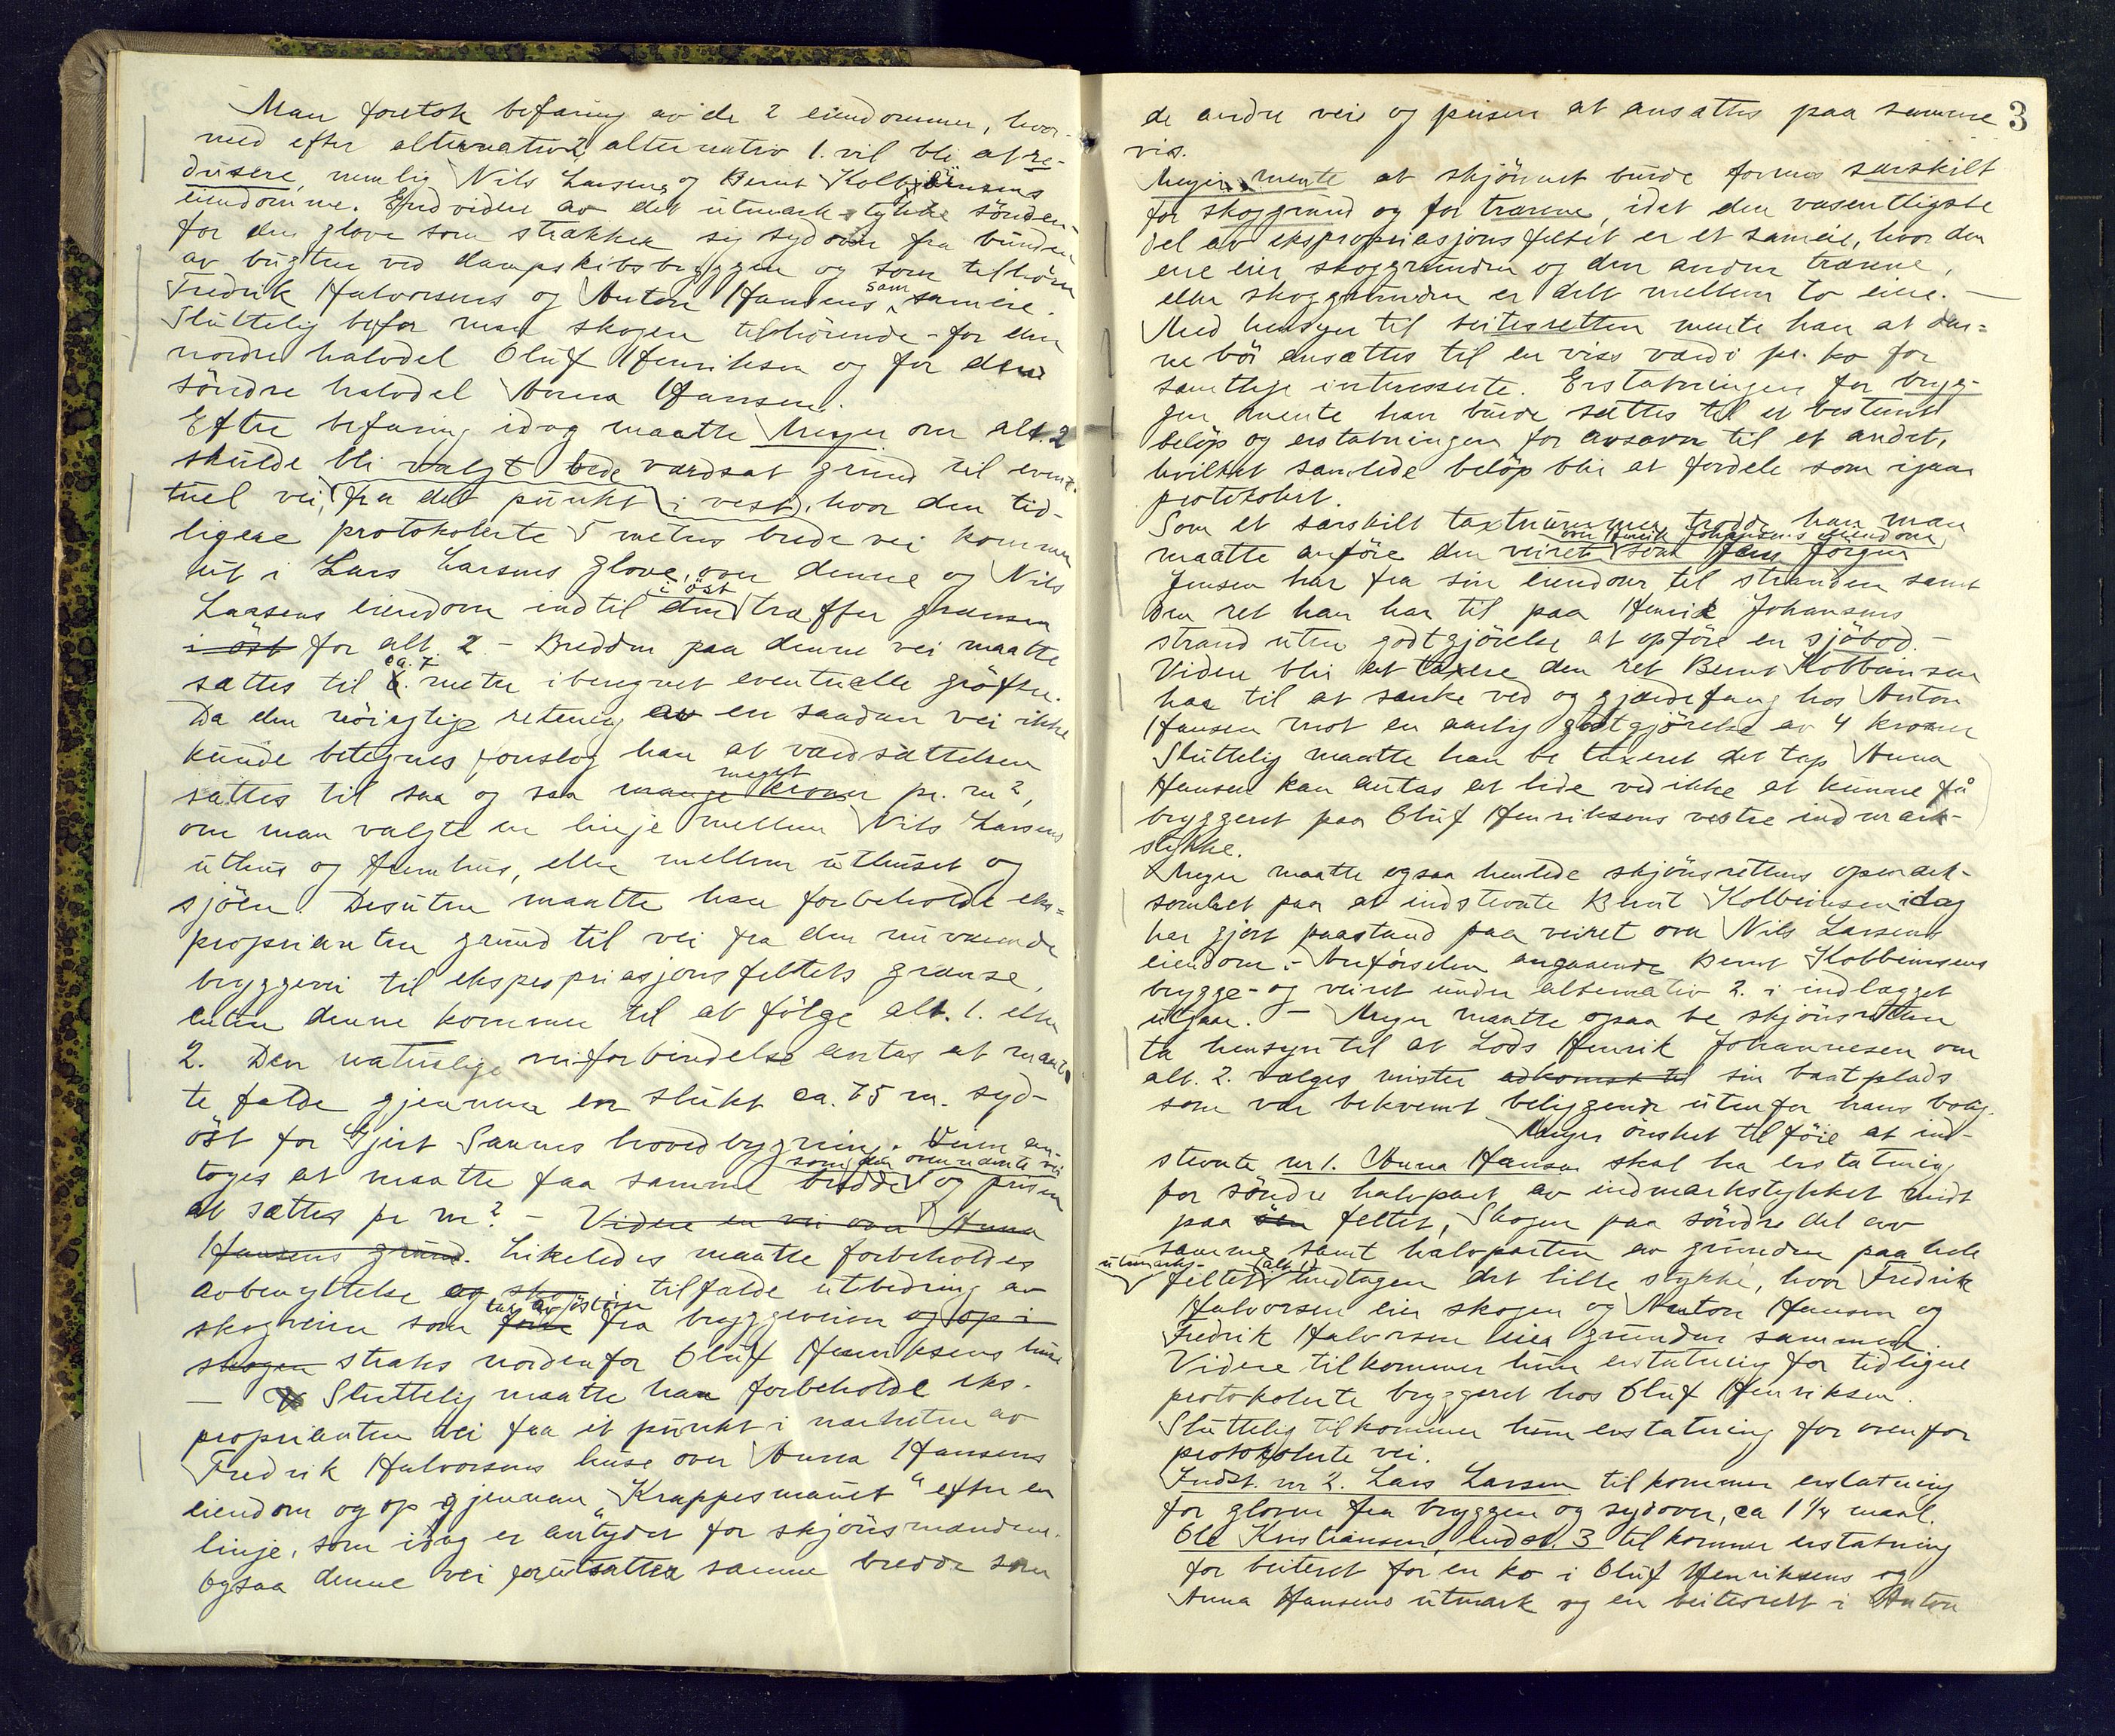 Man foretok befaring av de 2 eiendommer, hvor-
med efter alternativ 2 alternativ 1. vil bli at re-
dusere, nemlig Nils Larsens og Bernt Kolbeinsens
eiendomme. Endvidere av det utmarkstykke sønden-
for den glove som strækker sig sydover fra bunden
av bugten ved dampskibsbryggen og som tilhører
Fredrik Halvorsens og Anton Hansens som sameie.
Sluttelig befor man skogen tilhørende - for den
nordre halvdel Oluf Henriksen og for den
søndre halvdel Anna Hansen.
Efter befaring idag maatte Meyer om alt. 2
skulde bli valgt bede værdsat grund til even-
tuel vei, fra det punkt i vest, hvor den tid-
ligere protokolerte 5 meters brede vei kommer
ut i Lars Larsens glove, over denne og Nils
Larsens eiendom indtil den i øst træffer grænsen
i øst for alt. 2 - Bredden paa denne vei maatte
sættes til ca. 7 meter iberegnet eventuelle grøfter.
Da den nøiagtige retning av en saadan vei ikke
kunde betegnes foreslog han at værdsættelsen
sættes til saa og saa mange kroner meget pr. m²,
om man valgte en linje mellem Nils Larsens
uthus og hus, eller mellem uthuset og
sjøen. Desuten maatte han forbeholde eks-
proprianten grund til vei fra den nuværende
bryggevei til ekspropriasjonsfeltets grænse,
enten denne kommer til at følge alt. 1. eller
2. Den naturlige veiforbindelse antas at maat-
te falde gjennem en slukt ca. 75 m. syd-
øst for Gjert Sannes hovedbygning. Veien an-
toges at maatte faa samme bredde som den ovennævnte vei og prisen
at sættes pr m². - Videre en vei over Anna
Hansens grund. Likeledes maatte forbeholdes
avbenyttelse og skog i tilfælde utbedring av
skogveien som tar av østover fra bryggeveien og op i
skogen straks nordenfor Oluf Henriksens huse
- Sluttelig maatte han forbeholde eks-
proprianten vei fra et punkt i nærheten av
Fredrik Halvorsens huse over Anna Hansens
eiendom og op gjennem "Krappesmauet" efter en
linje, som idag er antydet for skjønsmændene.
Ogsaa denne vei forutsættes samme bredde som
3
de andre veie og prisen at ansættes paa samme
vis.
Meyer mente at skjønnet burde formes særskilt
for skoggrund og for trærne, idet den væsentligste
del av ekspropriasjonsfeltet er et sameie, hvor den
ene eier skoggrunden og den anden trærne,
eller skoggrunden er delt mellem to eiere. -
Med hensyn til beitesretten mente han at den-
ne bør ansættes til en viss værdi pr. ko for
samtlige interesserte. Erstatningen for bryg-
gen mente han burde sættes til et bestemt
beløp og erstatningen for avsavn til et andet,
hvilket samlede beløp blir at fordele som igaar
protokolert.
Som et særskilt taxtnummer trodde han man
maatte anføre den veiret over Henrik Johansens eiendom som Jørgen
Jensen har fra sin eiendom til stranden samt
den ret han har til paa Henrik Johansens
strand uten godtgjørelse at opføre en sjøbod. -
Videre bli at taxere den ret Bernt Kolbeinsen
har til at sanke ved og gjærdefang hos Anton
Hansen mot en aarlig godtgjørelse av 4 kroner
Sluttelig maatte han be taxeret det tap Anna
Hansen kan antas at lide ved ikke at kunne få
bryggeret paa Oluf Henriksens vestre indmark-
stykke.
Meyer maatte ogsaa henlede skjønsrettens opmerk-
somhet paa at indstevnte Bernt Kolbeinsen idag
har gjort paastand paa veiret over Nils Larsens
eiendom. - Anførselen angaaende Bernt Kolbeinsens
brygge- og veiret under alternativ 2. i indlægget
utgaar. - Meyer maatte ogsaa be skjønsretten
ta hensyn til at Lods Henrik Johannesen om
alt. 2. vælges mister adkomst til sin baatplads
som var bekvemt beliggende utenfor hans bolig.
Meyer ønsket tilføie at ind-
stevnte nr 1. Anna Hansen skal ha erstatning
for søndre halvpart av indmarkstykket midt
paa feltet, Skogen paa søndre del av
samme samt halvparten av grunden paa hele
utmarks-feltet (alt 1) undtagen det lille stykke, hvor Fredrik
Halvorsen eier skogen og Anton Hansen og
Fredrik Halvorsen eier grunden sammen.
Videre tilkommer hun erstatning for tidligere
protokolerte bryggeret hos Oluf Henriksen.
Sluttelig tilkommer hun erstatning for ovenfor
protokolerte vei.
Indst. nr 2. Lars Larsen tilkommer erstatning
for gloven fra bryggen og sydover, ca 1 1/4 maal.
Ole Kristiansen, indst. 3 tilkommer erstatning
for beiteret for en ko i Oluf Henriksens og
Anna Hansens utmark og en beitesrett i Anton